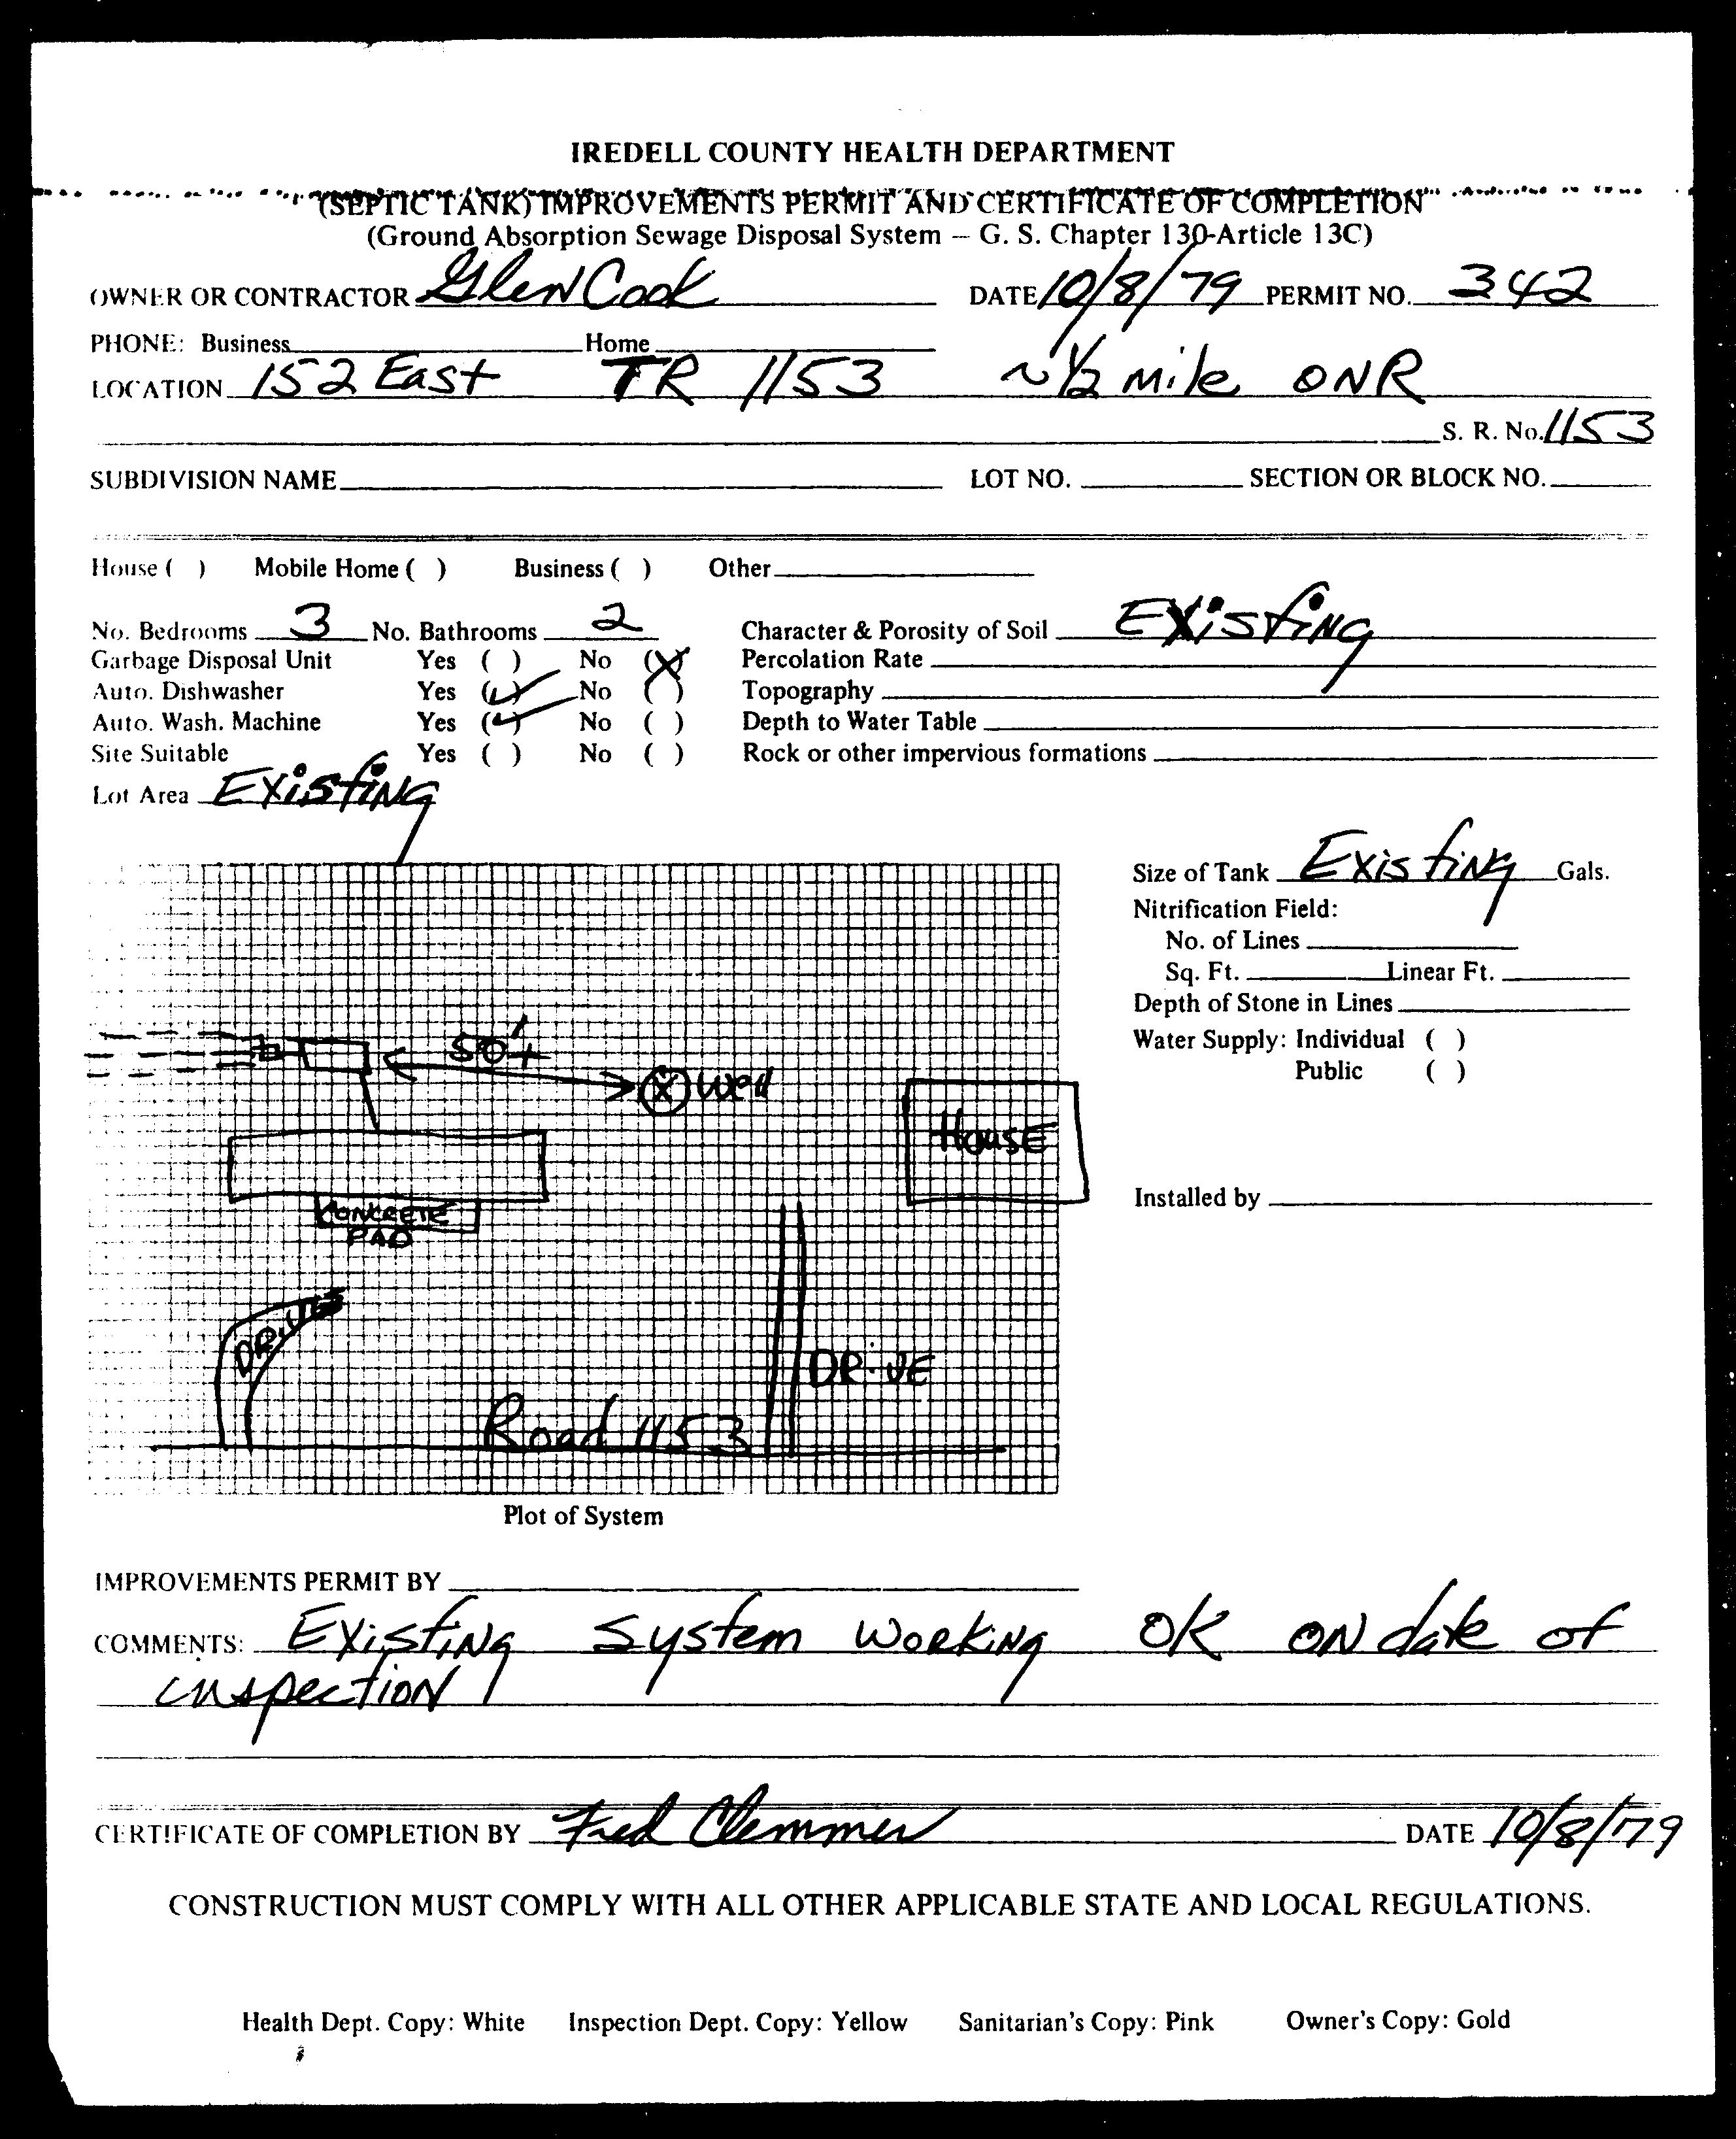 IREDELL COUNTY HEALTH DEPARTMENT
(SEPTIC TANK) IMPROVEMENTS PERMIT AND CERTIFICATE OF COMPLETION
(Ground Absorption Sewage Disposal System — G. S. Chapter 130-Article 13C)
OWNER OR CONTRACTOR Glen Cook DATE 10/8/79 PERMIT NO. 342
PHONE: Business Home
LOCATION 152 East TR 1153 ~ 1/2 mile ON R
S. R. No. 1153
SUBDIVISION NAME LOT NO. SECTION OR BLOCK NO.
House ( ) Mobile Home ( ) Business ( ) Other
No. Bedrooms 3 No. Bathrooms 2 Character & Porosity of Soil Existing
Garbage Disposal Unit Yes ( ) No (X) Percolation Rate
Auto. Dishwasher Yes (✓) No ( ) Topography
Auto. Wash. Machine Yes (✓) No ( ) Depth to Water Table
Site Suitable Yes ( ) No ( ) Rock or other impervious formations
Lot Area Existing
Size of Tank Existing Gals.
Nitrification Field:
No. of Lines
Sq. Ft. Linear Ft.
Depth of Stone in Lines
Water Supply: Individual ( )
Public ( )
Installed by
50'±
X Well
House
CONCRETE
PAD
DRIVE
DRIVE
Road 1153
Plot of System
IMPROVEMENTS PERMIT BY
COMMENTS: Existing System Working OK ON date of
inspection
CERTIFICATE OF COMPLETION BY Fred Clemmer DATE 10/8/79
CONSTRUCTION MUST COMPLY WITH ALL OTHER APPLICABLE STATE AND LOCAL REGULATIONS.
Health Dept. Copy: White Inspection Dept. Copy: Yellow Sanitarian's Copy: Pink Owner's Copy: Gold